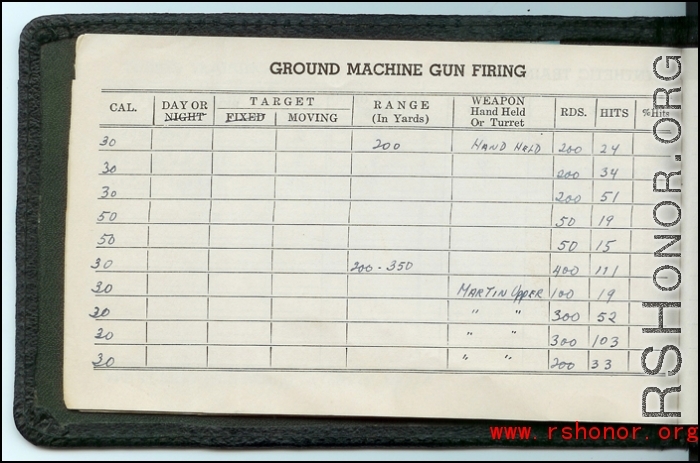 GROUND MACHINE GUN FIRING
CAL. DAY OR NIGHT TARGET FIXED MOVING RANGE (In Yards) WEAPON Hand Held Or Turret RDS. HITS %Hits
30 200 HAND HELD 200 24
30 200 34
30 200 51
50 50 19
50 50 15
30 200-350 400 111
30 MARTIN Upper 100 19
30 " " 300 52
30 " " 300 103
30 " " 200 33
RSHONOR.ORG
www.rshonor.org